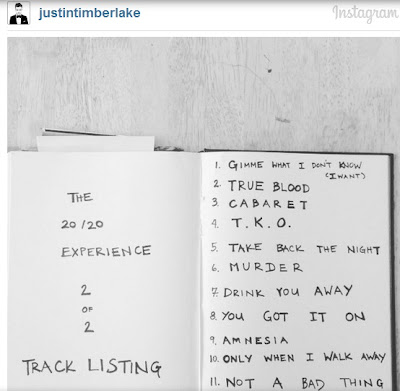 justintimberlake
Instagram
THE
20/20
EXPERIENCE
2
OF
2
TRACK LISTING
1. GIMME WHAT I DON'T KNOW
(I WANT)
2. TRUE BLOOD
3. CABARET
4. T.K.O.
5. TAKE BACK THE NIGHT
6. MURDER
7. DRINK YOU AWAY
8. YOU GOT IT ON
9. AMNESIA
10. ONLY WHEN I WALK AWAY
11. NOT A BAD THING